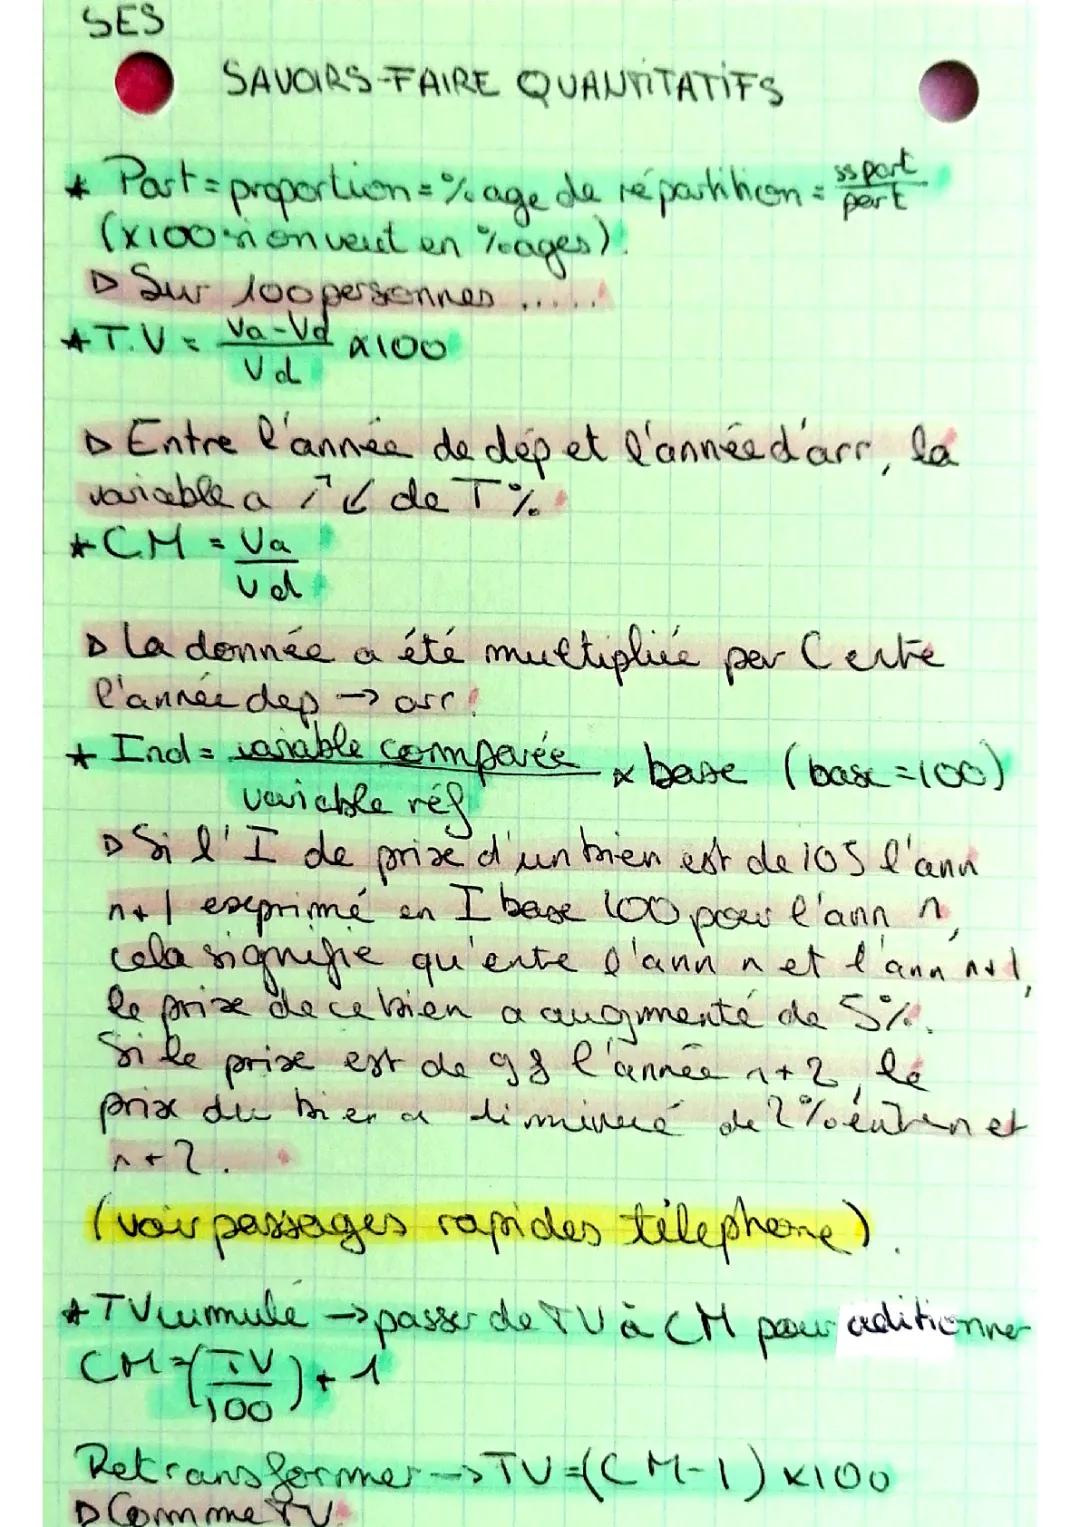 SES
SAVOIRS-FAIRE QUANTITATIFS
* Part = proportion = % age de répartition = ss part / part
(x100 si on veut en % ages).
▷ Sur 100 personnes .....
* T.V = Va-Vd / Vd x100
▷ Entre l'année de dép et l'année d'arr, la
variable a ↗↙ de T%
* CM = Va / Vd
▷ La donnée a été multipliée par C entre
l'année dep → arr
* Ind = variable comparée / variable réf x base (base=100)
▷ Si l'I de prix d'un bien est de 105 l'ann
n+1 exprimé en I base 100 pour l'ann n,
cela signifie qu'entre l'ann n et l'ann n+1,
le prix de ce bien a augmenté de 5%.
Si le prix est de 98 l'année n+2, le
prix du bien a diminué de 2% entre n et
n+2.
(voir passages rapides téléphone).
* TV cumulé → passer de TV à CM pour aditionner
CM = (TV / 100) + 1
Retransformer → TV = (CM-1) x100
▷ Comme TV.